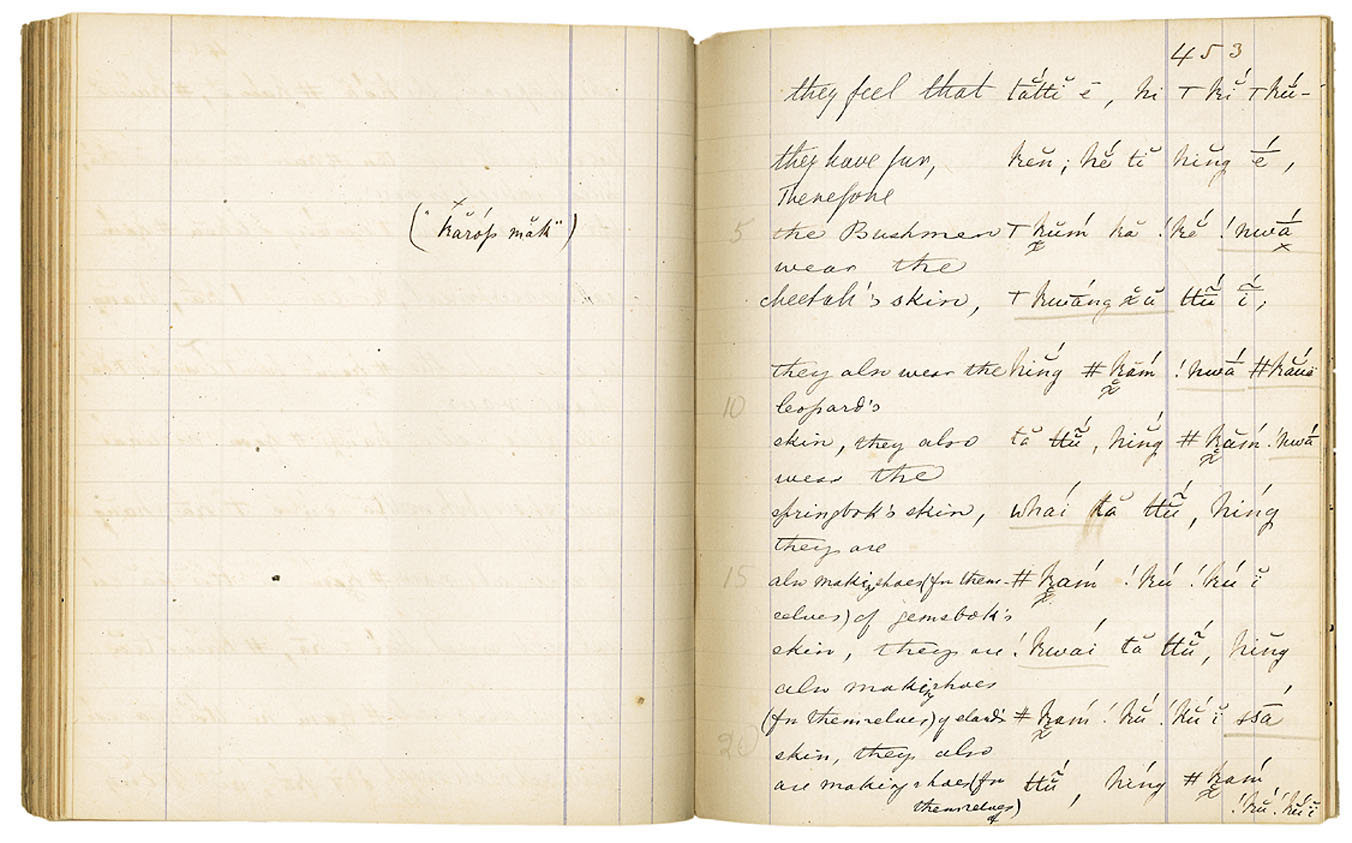 ("kăróʃs măk")
453
they feel that tắttĭ ē, hi ⊤ kĭ́ ⊤kŭ́-
they have fur, kĕn; hĕ́ tĭ hĭng é,
Therefore
5 the Bushmen ⊤ kŭḿ kă !kĕ́ !nwā́
wear the
cheetah's skin, ⊤ kwā́ng xŭ ttŭ̃ ĩ;
they also wear the hĭ́ng ǂ kăḿ !nwā́ ǂkăúï
10 leopard's
skin, they also tă ttŭ̃́, hĭ́ng ǂ kăḿ !nwā́
wear the
springbok's skin, whaí tă ttŭ̃́, hĭńg
they are
15 also making shoes (for them- ǂ kaḿ !kú !kú ĭ
selves) of gemsbok's
skin, they are !kwaí tă ttŭ̃́, hĭ́ng
also making shoes
(for themselves) of eland's ǂ kaḿ !kŭ́ !kŭ́ ĭ sā́
20 skin, they also
are making shoes (for ttŭ̃́, hĭńg ǂ kaḿ
themselves) of !kŭ́ !kŭ́ ĭ